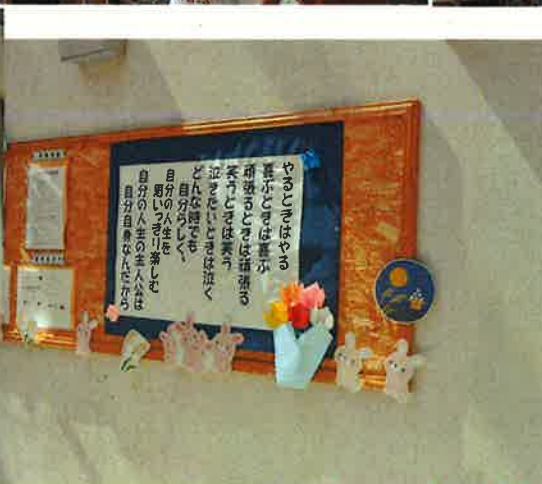 やるときはやる
喜ぶときは喜ぶ
頑張るときは頑張る
笑うときは笑う
泣きたいときは泣く
どんな時でも
自分らしく、
自分の人生を
思いっきり楽しむ
自分の人生の主人公は
自分自身なんだから